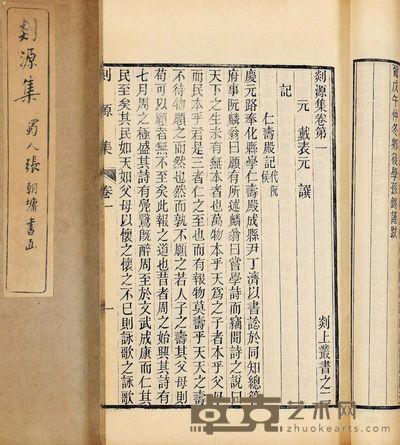 戊午仲冬鄉後學孫鏘謹跋
剡源集卷第一 剡上叢書之二
元 戴表元 譔
記
仁壽殿記代阮侯
慶元路奉化縣學仁壽殿成縣尹丁濟以書諗於同知總管
府事阮麟翁曰願有所述麟翁曰嘗學詩而竊聞詩之說曰
天下之生未有無本者也萬物本乎天為之子者本乎父母
而民本乎君是三者仁之至也而有報物莫壽乎天天之壽
不待物願之而然也若人子之壽其父母則
願有無不至矣此報之道也昔者周之始興其詩有
七月周之極盛其詩有鳧鷖既醉周至於文武成康而仁其
民至矣其民如天如父母以懷之懷之不已則詠歌之詠歌
剡源集 卷一 一
剡源集
蜀人張朝墉書耑
艺术网